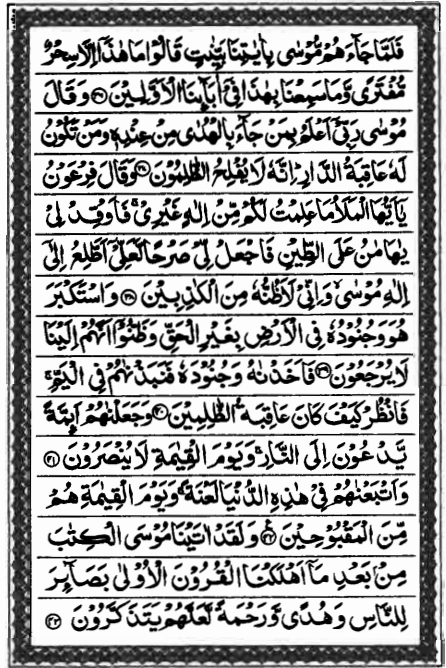 فَلَمَّا جَآءَهُمْ مُّوْسٰى بِاٰيٰتِنَا بَيِّنٰتٍ قَالُوْا مَا هٰذَاۤ اِلَّا سِحْرٌ
مُّفْتَرًى وَّمَا سَمِعْنَا بِهٰذَا فِىْۤ اٰبَآئِنَا الْاَوَّلِيْنَ ۝۳۶ وَقَالَ
مُوْسٰى رَبِّىْۤ اَعْلَمُ بِمَنْ جَآءَ بِالْهُدٰى مِنْ عِنْدِهٖ وَمَنْ تَكُوْنُ
لَهٗ عَاقِبَةُ الدَّارِ ؕ اِنَّهٗ لَا يُفْلِحُ الظّٰلِمُوْنَ ۝۳۷ وَقَالَ فِرْعَوْنُ
يٰۤاَيُّهَا الْمَلَاُ مَا عَلِمْتُ لَكُمْ مِّنْ اِلٰهٍ غَيْرِىْ ۚ فَاَوْقِدْ لِىْ
يٰهَامٰنُ عَلَى الطِّيْنِ فَاجْعَلْ لِّىْ صَرْحًا لَّعَلِّىْۤ اَطَّلِعُ اِلٰٓى
اِلٰهِ مُوْسٰى ۙ وَاِنِّىْ لَاَظُنُّهٗ مِنَ الْكٰذِبِيْنَ ۝۳۸ وَاسْتَكْبَرَ
هُوَ وَجُنُوْدُهٗ فِى الْاَرْضِ بِغَيْرِ الْحَقِّ وَظَنُّوْۤا اَنَّهُمْ اِلَيْنَا
لَا يُرْجَعُوْنَ ۝۳۹ فَاَخَذْنٰهُ وَجُنُوْدَهٗ فَنَبَذْنٰهُمْ فِى الْيَمِّ ۚ
فَانْظُرْ كَيْفَ كَانَ عَاقِبَةُ الظّٰلِمِيْنَ ۝۴۰ وَجَعَلْنٰهُمْ اَئِمَّةً
يَّدْعُوْنَ اِلَى النَّارِ ۚ وَيَوْمَ الْقِيٰمَةِ لَا يُنْصَرُوْنَ ۝۴۱
وَاَتْبَعْنٰهُمْ فِىْ هٰذِهِ الدُّنْيَا لَعْنَةً ۚ وَيَوْمَ الْقِيٰمَةِ هُمْ
مِّنَ الْمَقْبُوْحِيْنَ ۝۴۲ وَلَقَدْ اٰتَيْنَا مُوْسَى الْكِتٰبَ
مِنْۢ بَعْدِ مَاۤ اَهْلَكْنَا الْقُرُوْنَ الْاُوْلٰى بَصَآئِرَ
لِلنَّاسِ وَهُدًى وَّرَحْمَةً لَّعَلَّهُمْ يَتَذَكَّرُوْنَ ۝۴۳